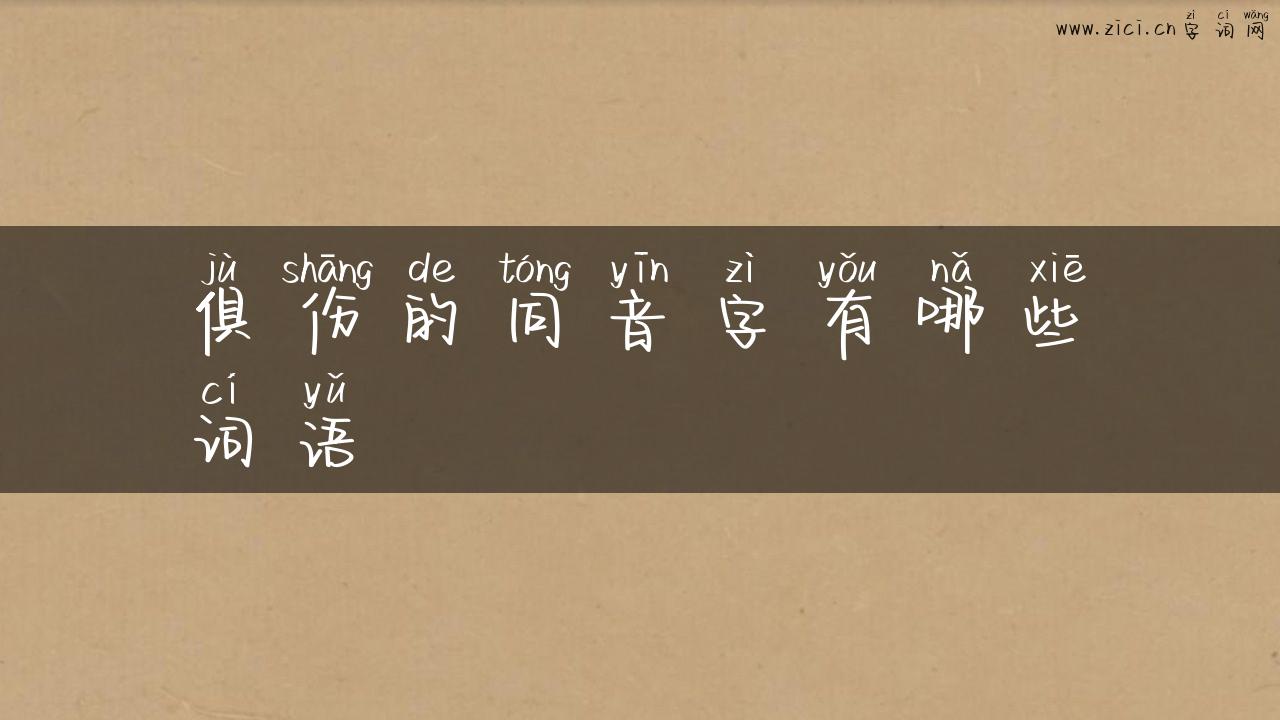 www.zici.cn 字词网
zì cí wǎng
jù shāng de tóng yīn zì yǒu nǎ xiē
俱伤的同音字有哪些
cí yǔ
词语